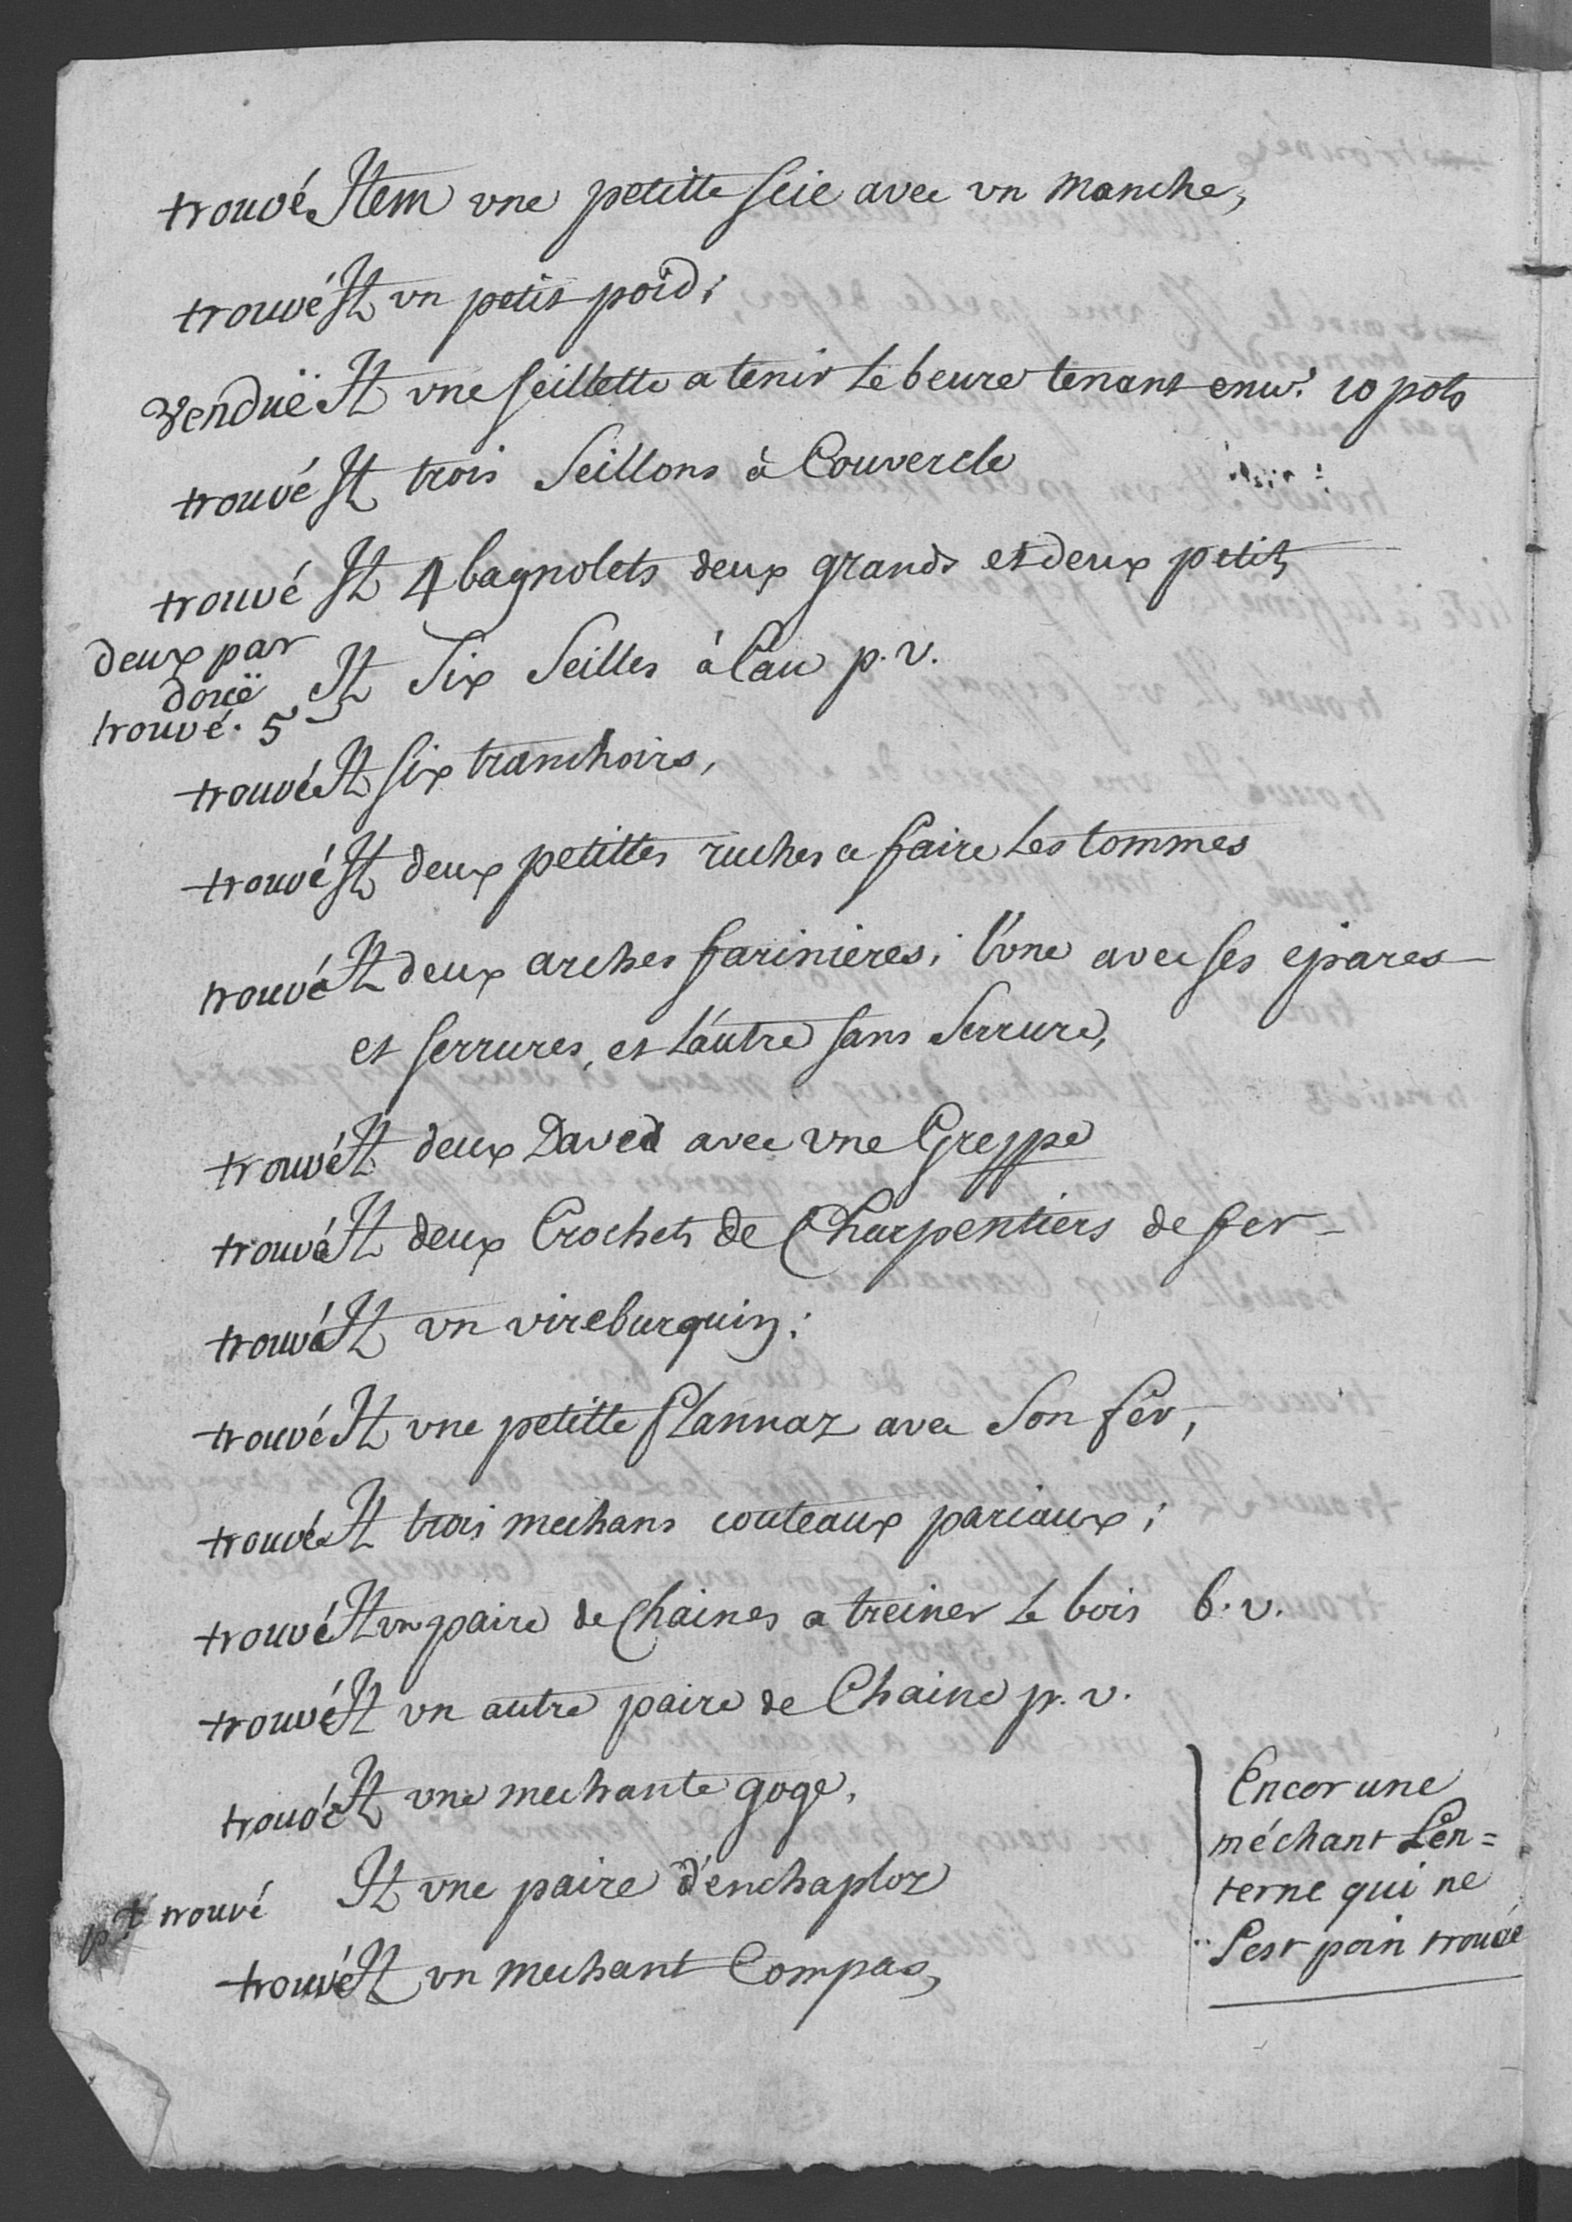 trouvé Item vne petitte scie avec vn manche,
trouvé It vn petit poid;
venduë It vne seillette a tenir le beure tenant env.ⁿ 10 pots
trouvé It trois seillons à Couvercle
trouvé It 4 bagnolets deux grands et deux petits
deux par It Six Seilles à l'au p. v.
doüé
trouvé. 5
trouvé It six tranchoirs,
trouvé It deux petittes ruches a faire les tommes
trouvé It deux arches farinieres; l'vne avec ses epares
et serrures, et l'autre sans serrure,
trouvé It deux Daved avec vne Greppe
trouvé It deux Crochets de Charpentiers de fer
trouvé It vn vireburquin;
trouvé It vne petitte plannaz avec son fer,
trouvé It trois mechans couteaux pariaux;
trouvé It vn paire de Chaines a treiner le bois b. v.
trouvé It vn autre paire de Chaine p. v.
trouvé It vne mechante goge,
trouvé It vne paire d'enchaploz
trouvé It vn mechant Compas,
Encor une
méchant Len=
terne qui ne
s'est poin trouvé